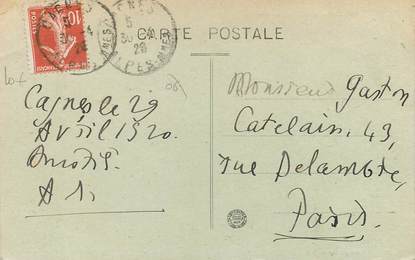 CARTE POSTALE
10
Cagnes le 29
Avril 1920.
A
Monsieur Gaston
Catelain, 43,
rue Delambre,
Paris.